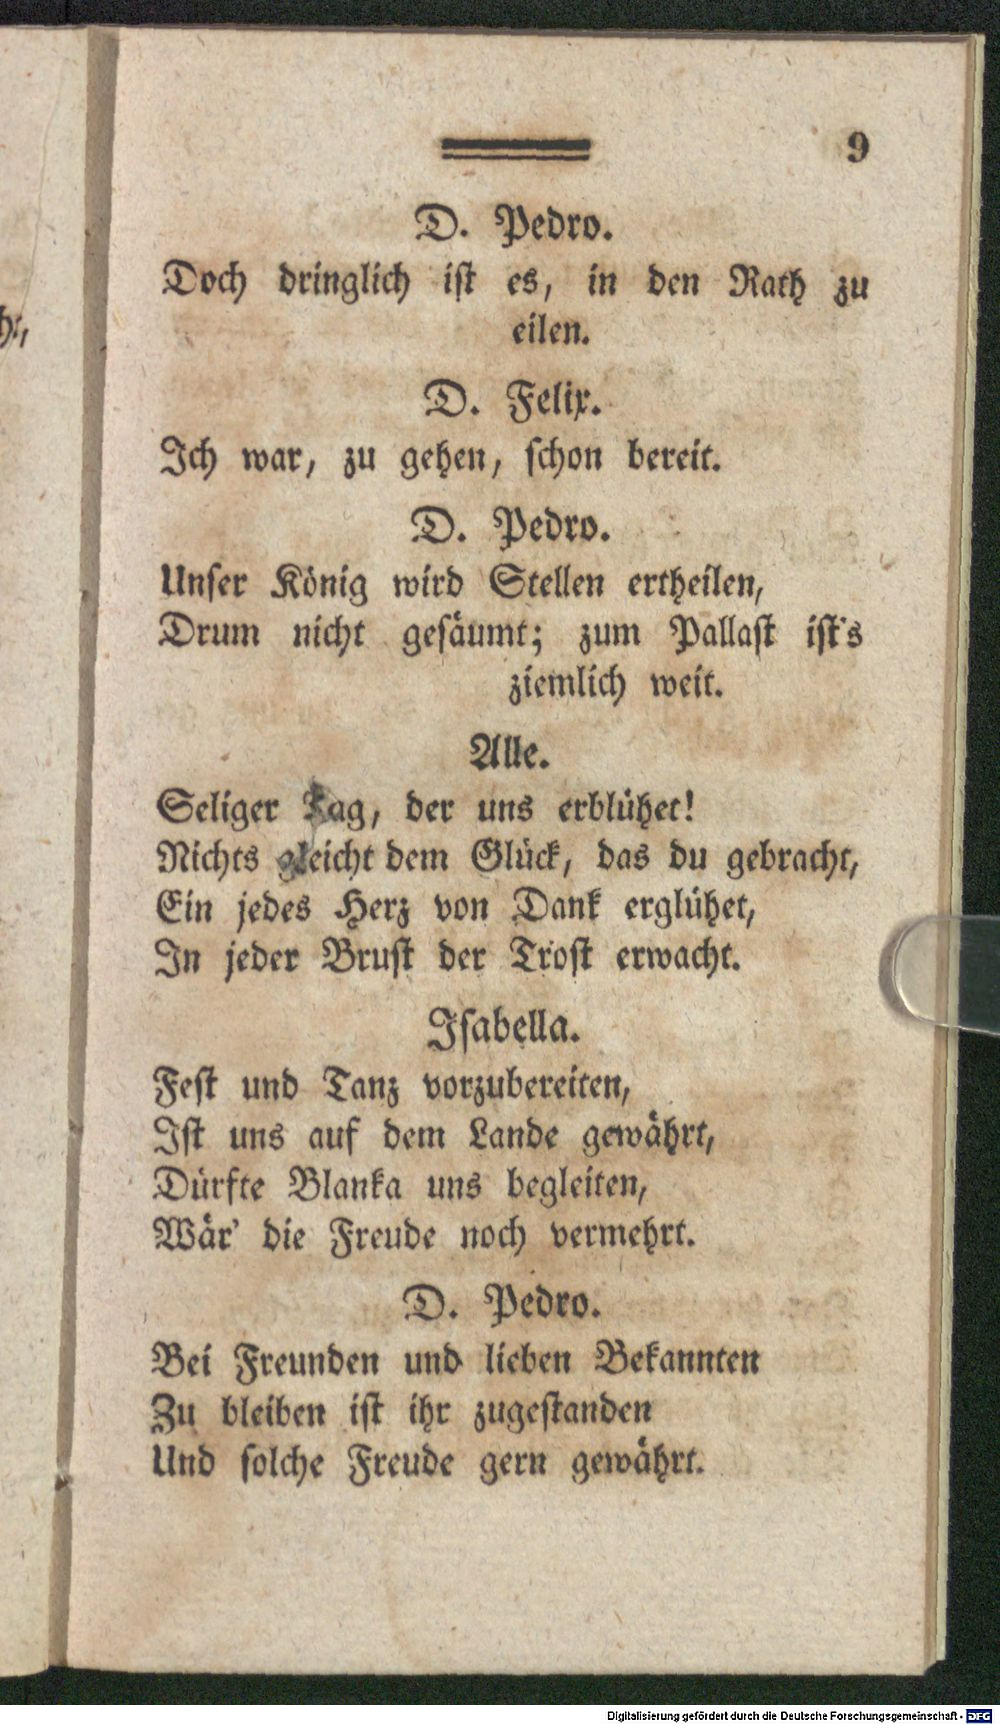 9
D. Pedro.
Doch dringlich ist es, in den Rath zu
eilen.
D. Felix.
Ich war, zu gehen, schon bereit.
D. Pedro.
Unser König wird Stellen ertheilen,
Drum nicht gesäumt; zum Pallast ist's
ziemlich weit.
Alle.
Seliger Tag, der uns erblühet!
Nichts gleicht dem Glück, das du gebracht,
Ein jedes Herz von Dank erglühet,
In jeder Brust der Trost erwacht.
Isabella.
Fest und Tanz vorzubereiten,
Ist uns auf dem Lande gewährt,
Dürfte Blanka uns begleiten,
Wär' die Freude noch vermehrt.
D. Pedro.
Bei Freunden und lieben Bekannten
Zu bleiben ist ihr zugestanden
Und solche Freude gern gewährt.
Digitalisierung gefördert durch die Deutsche Forschungsgemeinschaft - DFG